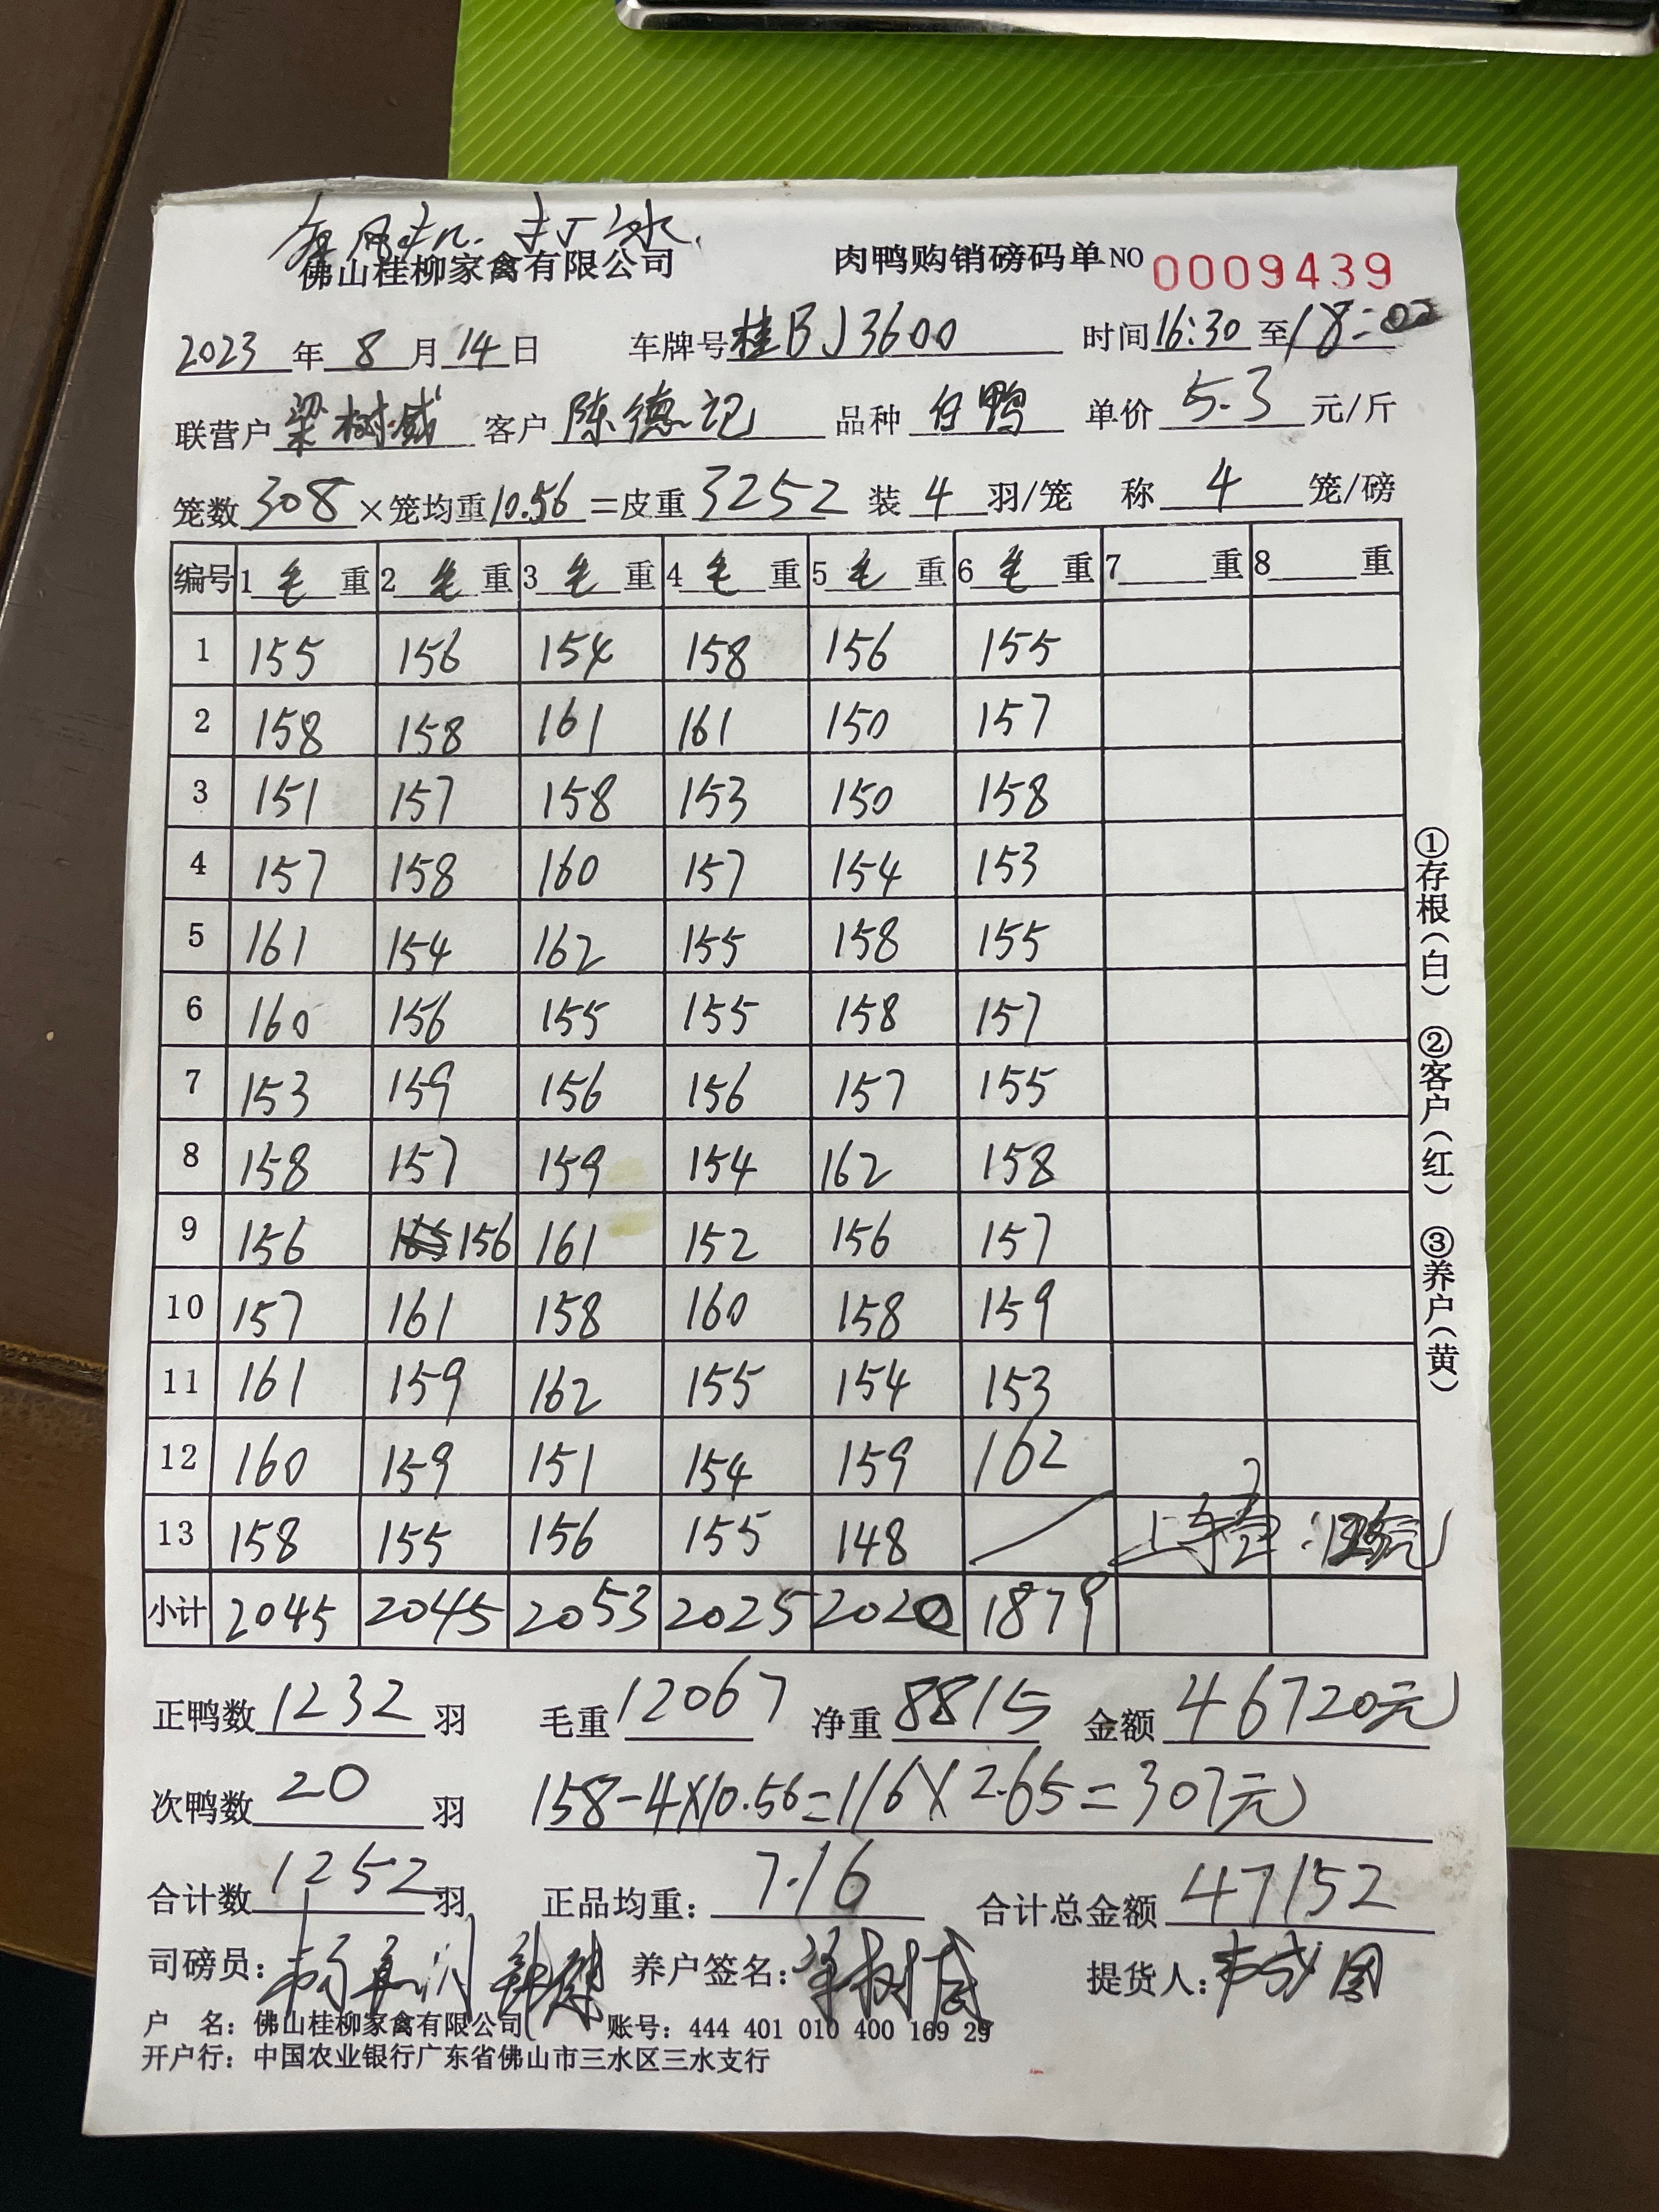 打水
佛山桂柳家禽有限公司 肉鸭购销磅码单 NO 0009439
2023 年 8 月 14 日 车牌号 桂BJ3600 时间 16:30 至 18:02
联营户 梁树威 客户 陈德记 品种 白鸭 单价 5.3 元/斤
笼数 308 ×笼均重 10.56 =皮重 3252 装 4 羽/笼 称 4 笼/磅
编号 1 毛 重 2 毛 重 3 毛 重 4 毛 重 5 毛 重 6 毛 重 7 重 8 重
1 155 156 154 158 156 155
2 158 158 161 161 150 157
3 151 157 158 153 150 158
4 157 158 160 157 154 153
5 161 154 162 155 158 155
6 160 156 155 155 158 157
7 153 159 156 156 157 155
8 158 157 159 154 162 158
9 156 156 161 152 156 157
10 157 161 158 160 158 159
11 161 159 162 155 154 153
12 160 159 151 154 159 162
13 158 155 156 155 148 上车
小计 2045 2045 2053 2025 2020 1879
正鸭数 1232 羽 毛重 12067 净重 8815 金额 46720元
次鸭数 20 羽 158-4×10.56=116×2.65=307元
合计数 1252 羽 正品均重: 7.16 合计总金额 47152
司磅员: 养户签名: 梁树威 提货人:
户 名: 佛山桂柳家禽有限公司 账号: 444 401 010 400 169 29
开户行: 中国农业银行广东省佛山市三水区三水支行
①存根(白) ②客户(红) ③养户(黄)